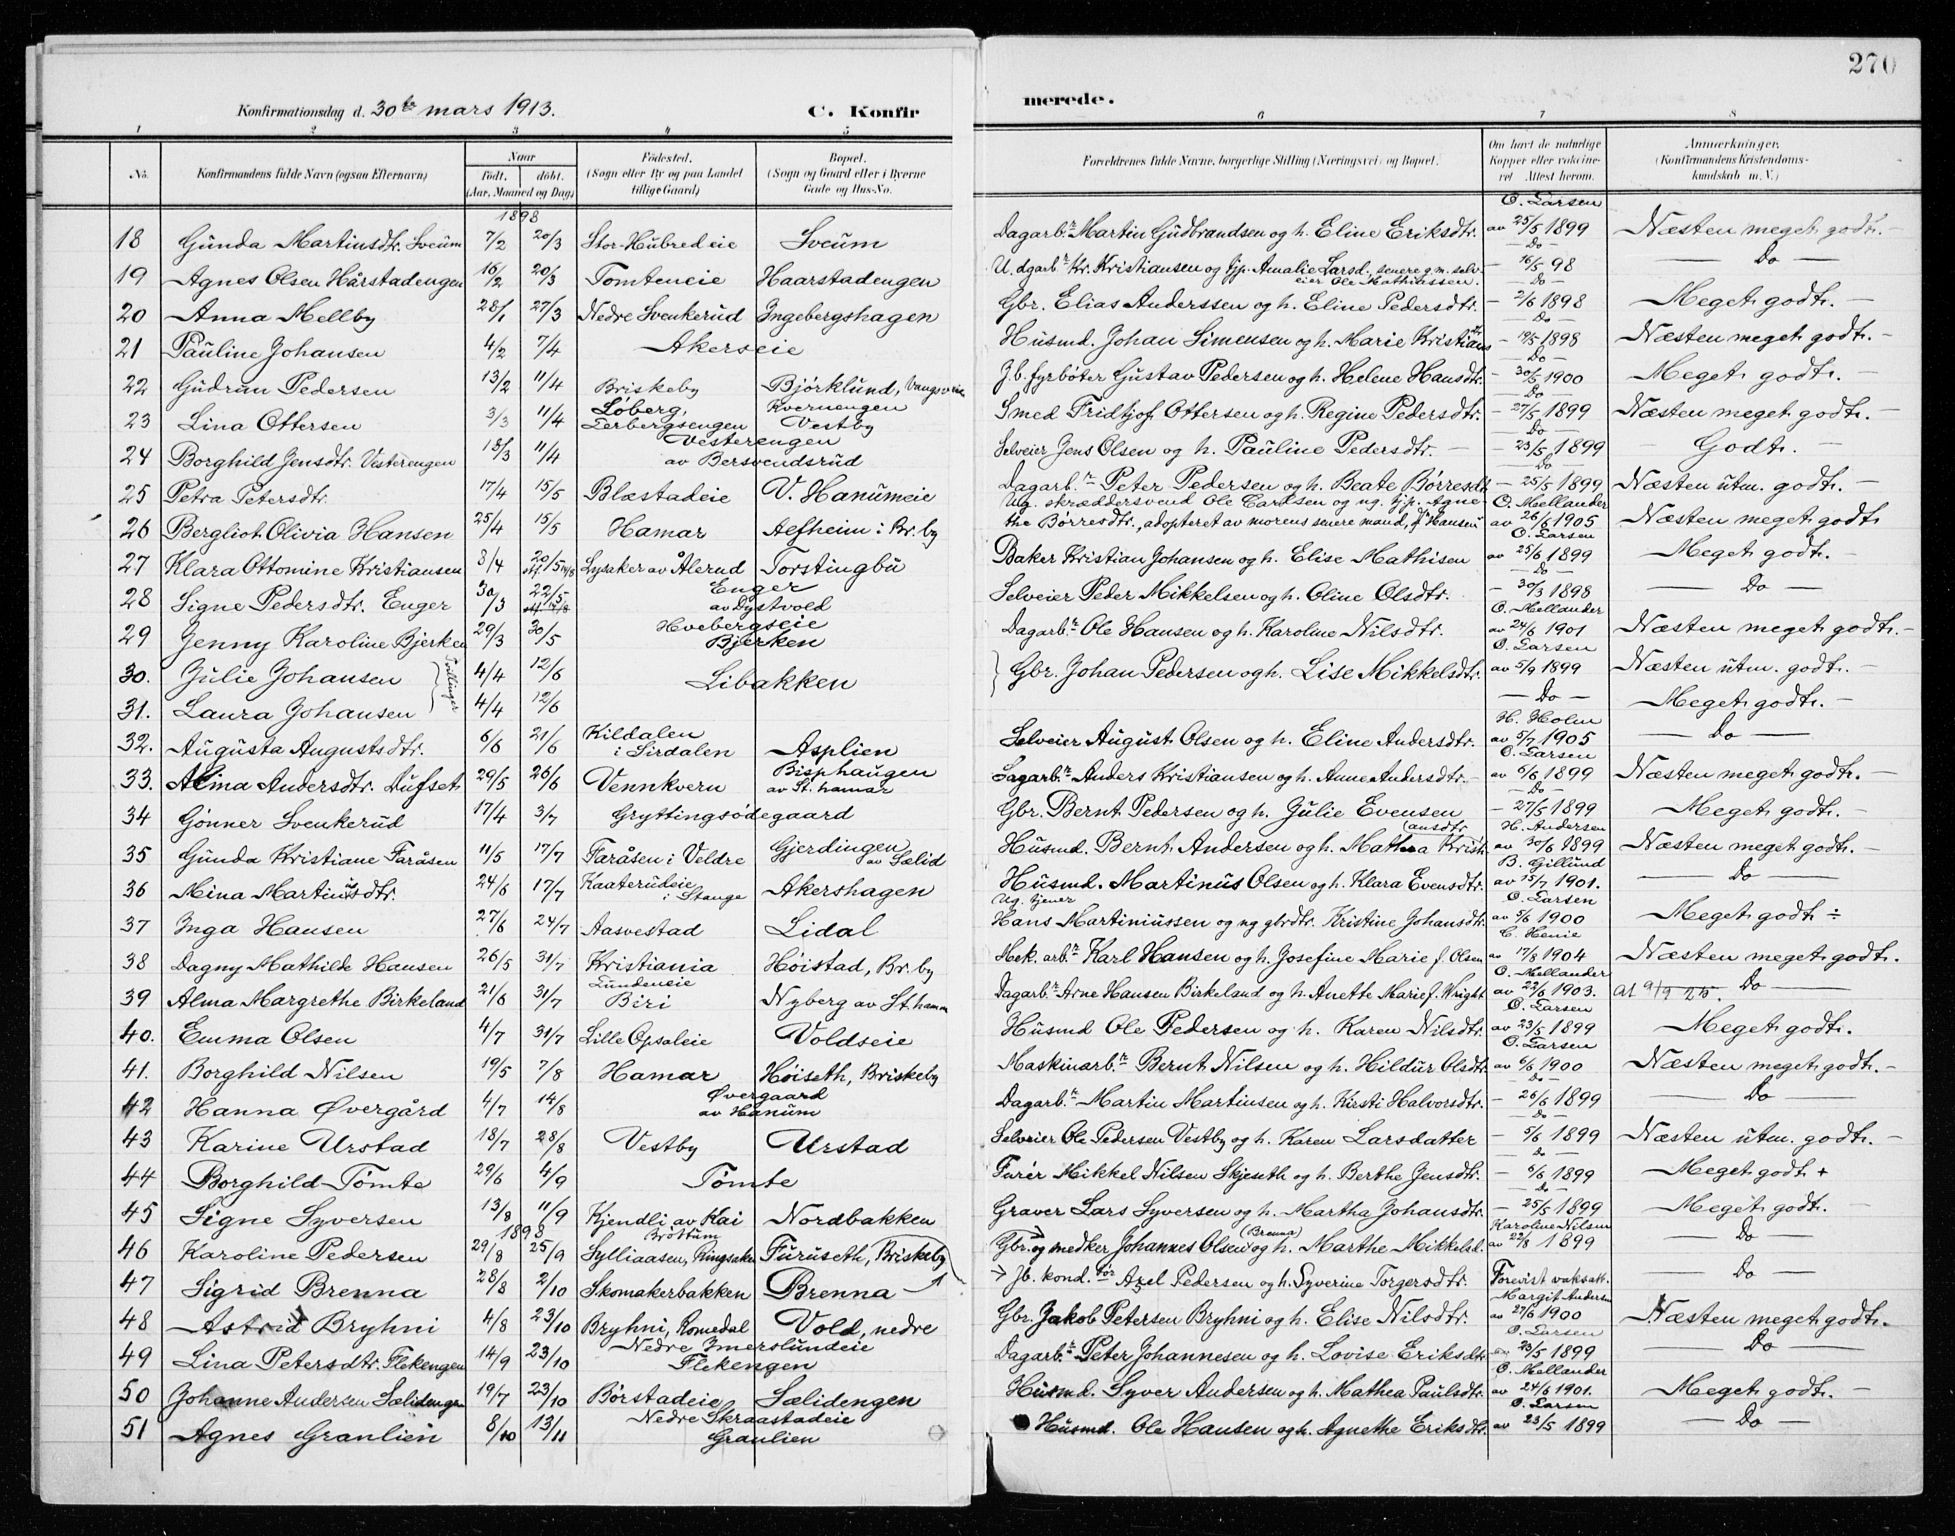 270
Konfirmationsdag d. 30te mars 1913. C. Konfirmerede.
1 2 3 4 5 6 7 8
No. Konfirmandens fulde Navn (ogsaa Efternavn) Naar födt. döbt. (Aar, Maaned og Dag) Födested. (Sogn eller By og paa Landet tillige Gaard) Bopæl. (Sogn og Gaard eller i Byerne Gade og Hus-No. Forældrenes fulde Navne, borgerlige Stilling (Næringsvei) og Bopæl. Om havt de naturlige Kopper eller vaksineret Attest herom. Anmærkninger. (Konfirmandens Kristendomskundskab m. V.)
1898
18 Gunda Martinsdtr. Sveum 7/2 20/3 Stor-Hubred eie Sveum Dagarb.r Martin Gudbrandsen og h. Eline Eriksdtr. O. Larsen av 25/5 1899 Næsten meget godt. —
19 Agnes Olsen Hårstadengen 16/2 20/3 Tomteneie Haarstadengen U. dgarb.r Kr. Kristiansen og pp. Amalie Larsd., senere g. m. selveier Ole Mathiassen. — Do — 16/5 98 — Do —
20 Anna Mellby 28/1 27/3 Nedre Svenkerud Ingebergshagen Gbr. Elias Anderssen og h. Eline Pedersdtr. — Do — 2/6 1898 Meget godt. —
21 Pauline Johansen 4/2 7/4 Akerseie Husmd. Johan Simensen og h. Marie Kristians — Do — 14/5 1898 Næsten meget godt. —
22 Gudrun Pedersen 13/2 11/4 Briskeby Bjørklund, Vangsveien J.b. fyrbøter Gustav Pedersen og h. Helene Hansdtr. — Do — 30/5 1900 Meget godt. —
23 Lina Ottersen 3/3 11/4 Løberg, Lerbergsengen Kvernengen Vestby Smed Fridtjof Ottersen og h. Regine Pedersdtr. — Do — 27/5 1899 Næsten meget godt. —
24 Borghild Jensdtr. Vesterengen 18/3 11/4 Vesterengen av Bersvendsrud Selveier Jens Olsen og h. Pauline Pedersdtr. — Do — 23/5 1899 — Godt. —
25 Petra Petersdtr. 17/4 15/5 Blæstadeie V. Hanumeie Dagarb.r Peter Pedersen og h. Beate Børresdt. — Do — 25/5 1899 Næsten utm. godt. —
26 Bergliot Olivia Hansen 25/4 15/5 Hamar Alfheim i Br. by Ug. skræddersvend Ole Carlsen og ug. tjp. Agnethe Børresdtr., adopteret av morens senere mand, Hansen O. Mellander av 26/6 1905 Næsten meget godt
27 Klara Ottomine Kristiansen 8/4 20/5 Lysaker av Ålerud Torstingbu Baker Kristian Johansen og h. Elise Mathisen O. Larsen av 25/6 1899 Meget godt. —
28 Signe Pedersdtr. Enger 30/3 22/5 Enger av Dystvold Selveier Peder Mikkelsen og h. Oline Olsdtr. — Do — 30/3 1898 — Do —
29 Jenny Karoline Bjerken 29/3 30/5 Hvebergseie Bjerken Dagarb.r Ole Hansen og h. Karoline Nilsdtr. O. Mellander av 24/6 1901 Næsten meget godt. —
30. Julie Johansen Tvillinger 4/4 12/6 Libakken Gbr. Johan Pedersen og h. Lise Mikkelsdtr. O. Larsen av 5/9 1899 Næsten utm. godt. —
31. Laura Johansen 4/4 12/6 — Do — Meget godt. —
32. Augusta Augustsdtr. 6/6 21/6 Kildalen i Sirdalen Asplien Selveier August Olsen og h. Eline Andersdtr. H. Holm av 5/7 1905 — Do —
33. Alma Andersdtr. Dufset 29/5 26/6 Vennkvern Bisphaugen av St. hamar Sagarb.r Anders Kristiansen og h. Anne Andersdtr. — O. Larsen av 6/6 1899 Næsten meget godt. —
34 Gønner Svenkerud 17/4 3/7 Gryttingsødegaard Gbr. Bernt Pedersen og h. Julie Evensen — Do — 27/5 1899 Meget godt. —
35 Gunda Kristiane Faråsen 11/5 17/7 Faråsen i Veldre Gjerdingen av Sælid Husmd. Bernt Andersen og h. Mathea Kristiansdtr H. Andersen av 30/6 1899 Næsten meget godt. —
36 Mina Martinusdtr. 24/6 17/7 Kaaterudeie i Stange Akershagen Husmd. Martinus Olsen og h. Klara Evensdtr. B. Gillund av 15/7 1901. — Do —
37 Inga Hansen 27/6 24/7 Aasvestad Lidal Ug. tjener Hans Martiniussen og ug gbrdtr. Kristine Johansdtr. O. Larsen av 5/6 1900 Meget godt ÷
38 Dagny Mathilde Hansen 26/5 31/7 Kristiania Høistad, Br. by Mek. arb.r Karl Hansen og h. Josefine Marie f. Olsen C. Henie av 17/8 1904 Næsten meget godt.
39 Alma Margrethe Birkeland 21/6 31/7 Lundeneie Biri Nyberg av St. hamar Dagarb.r Arne Hansen Birkeland og h. Anette Marie f. Wright O. Mellander av 22/6 1903. at 9/9 25. Do —
40. Emma Olsen 4/7 31/7 Lille Opsaleie Voldseie Husmd Ole Pedersen og h. Karen Nilsdtr. O. Larsen av 23/5 1899 Meget godt.
41. Borghild Nilsen 19/5 7/8 Hamar Høiseth, Briskeby Maskinarb.r Bernt Nilsen og h. Hildur Olsdtr. O. Larsen av 6/6 1900 Næsten meget godt. —
42 Hanna Øvergård 4/7 14/8 Øvergaard av Hanum Dagarb.r Martin Martinsen og h. Kirsti Halvorsdtr. — Do — 26/6 1899 — Do —
43 Karine Urstad 18/7 28/8 Vestby Urstad Selveier Ole Pedersen Vestby og h. Karen Larsdatter — Do — 5/6 1899 Næsten utm. godt. —
44 Borghild Tömte 29/6 4/9 Tömte Furér Mikkel Nilsen Skjeseth og h. Berthe Jensdtr. — Do — 6/6 1899 Meget godt +
45 Signe Syversen 13/8 11/9 Kjendli av Kai Nordbakken Graver Lars Syversen og h. Martha Johansdtr. — Do — 25/5 1899 Meget godt. —
1898
46 Karoline Pedersen 29/8 25/9 Brøttum Sylliaasen, Ringsaker Furuseth, Briskeby Gbr. og smedker Johannes Olsen (Brenna) og h. Marthe Mikkelsd. Karoline Nilsen av 22/8 1899 — Do —
47 Sigrid Brenna 28/8 2/10 Skomakerbakken Brenna Jb. kond. Axel Pedersen og h. Syverine Torgersdtr. Forevist vaksatt. — Do —
48 Astrid Bryhni 4/8 23/10 Bryhni, Romedal Vold, nedre Gbr. Jakob Petersen Bryhni og h. Elise Nilsdtr. Margit Andersen av 27/6 1900 Næsten meget godt. —
49 Lina Petersdtr. Flekengen 14/9 23/10 Nedre Imerslundeie Flekengen Dagarb.r Peter Johannesen og h. Lovise Eriksdtr O. Larsen 23/5 1899 — Do —
50 Johanne Andersen Sælidengen 19/7 23/10 Børstadeie Sælidengen Husmd. Syver Andersen og h. Mathea Paulsdtr. O. Mellander av 24/6 1901. Meget godt. —
51 Agnes Granlien 8/10 13/11 Nedre Skraastadeie Granlien Husmd. Ole Hansen og h. Agnethe Eriksdtr. O. Larsen av 23/5 1899 — Do —